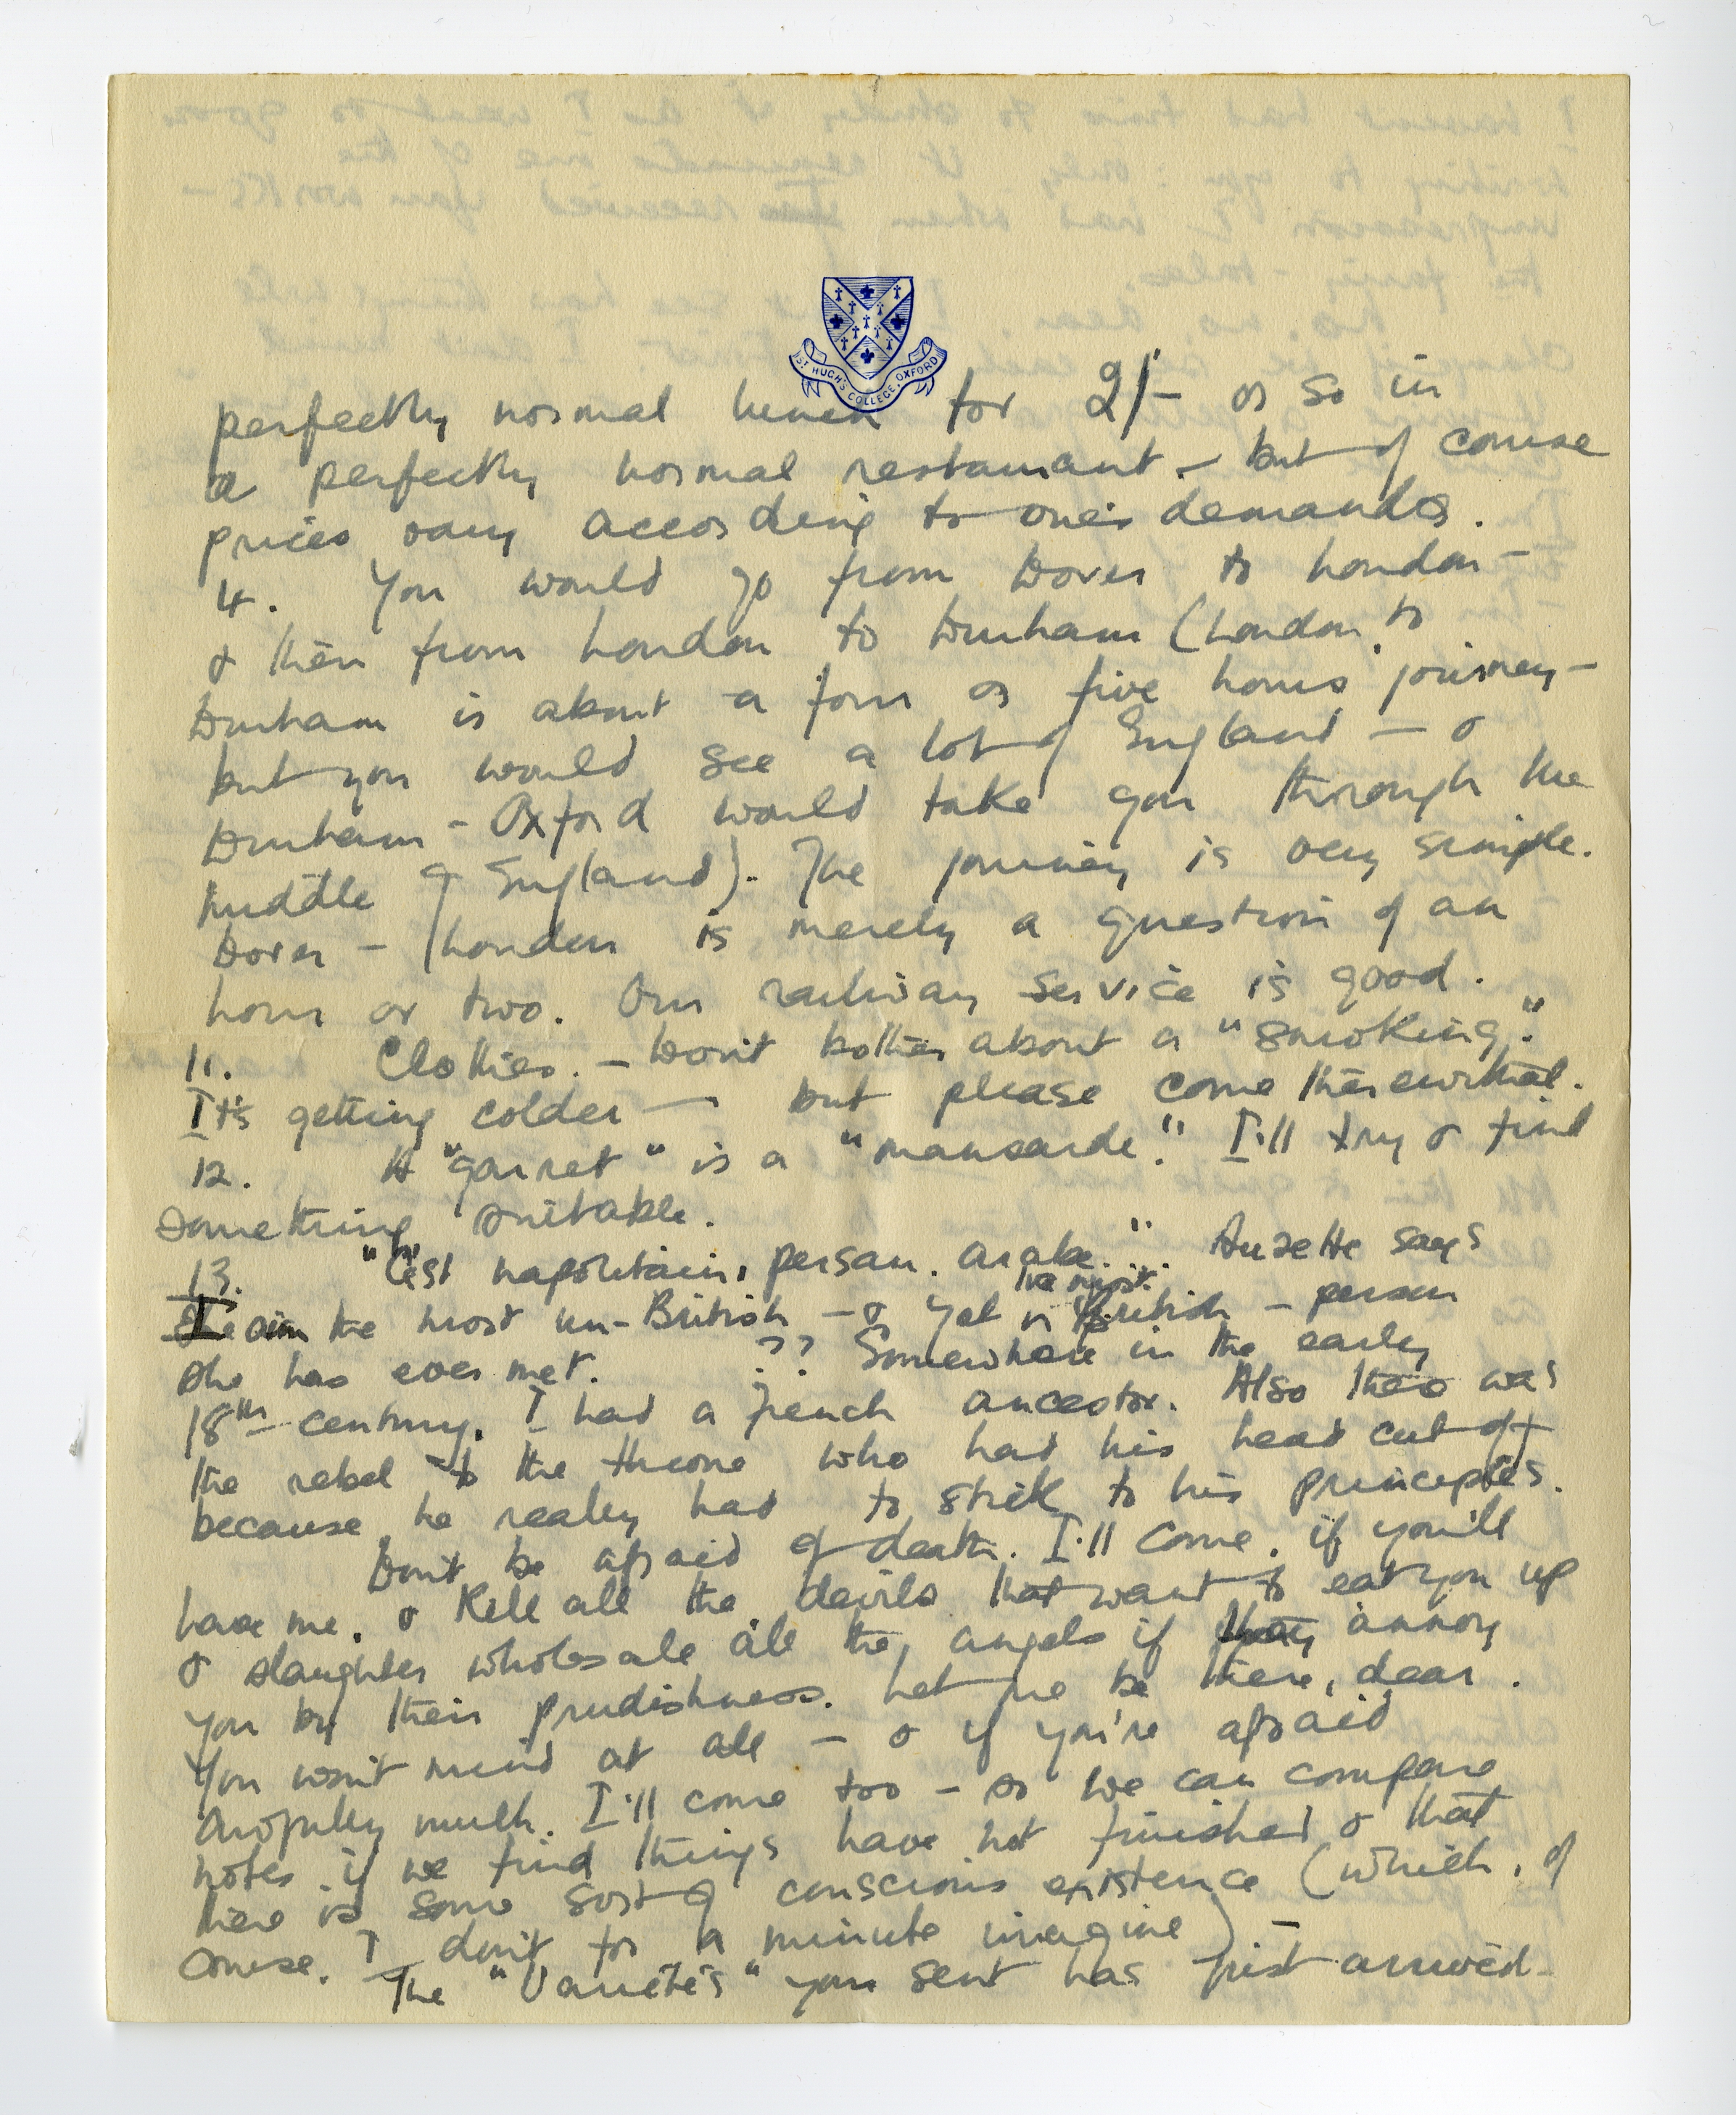 ST HUGH'S COLLEGE, OXFORD
perfectly normal lunch for 2/- or so in
a perfectly normal restaurant - but of course
prices vary according to one's demands.
4. You would go from Dover to London -
& then from London to Durham (London to
Durham is about a four or five hours journey -
but you would see a lot of England - &
Durham - Oxford would take you through the
middle of England). The journey is very simple.
Dover - London is merely a question of an
hour or two. Our railway service is good.
11. Clothes. - Don't bother about a "smoking".
It's getting colder - but please come therewithal.
12. A "garret" is a "mansarde". I'll try & find
something suitable.
13. "C'est napolitain, persan, arabe." says
I am the most un-British - & yet the most British - person
she has ever met. ?? Somewhere in the early
18th century, I had a French ancestor. Also there was
the rebel to the throne who had his head cut off
because he really had to stick to his principles.
Don't be afraid of death. I'll come, if you'll
have me, & kill all the devils that want to eat you up
& slaughter wholesale all the angels if they annoy
you by their prudishness. Let me be there, dear.
You won't mind at all - & if you're afraid
awfully much, I'll come too - so we can compare
notes, if we find things have not finished & that
there is some sort of conscious existence (which, of
course, I don't for a minute imagine) -
The "Variétés" you sent has just arrived -